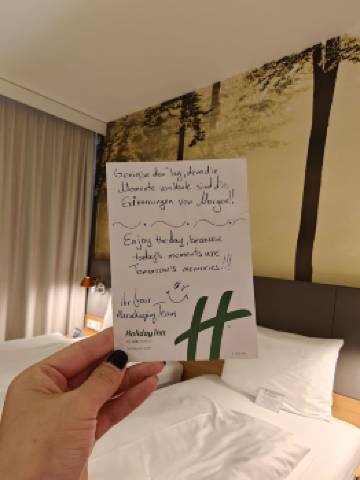 Genieße den Tag, denn die
Momente von Heute sind die
Erinnerungen von Morgen!!
Enjoy the day, because
today's moments are
Tomorrow's memories..!!
Ihr/your
Housekeeping Team
Holiday Inn
H